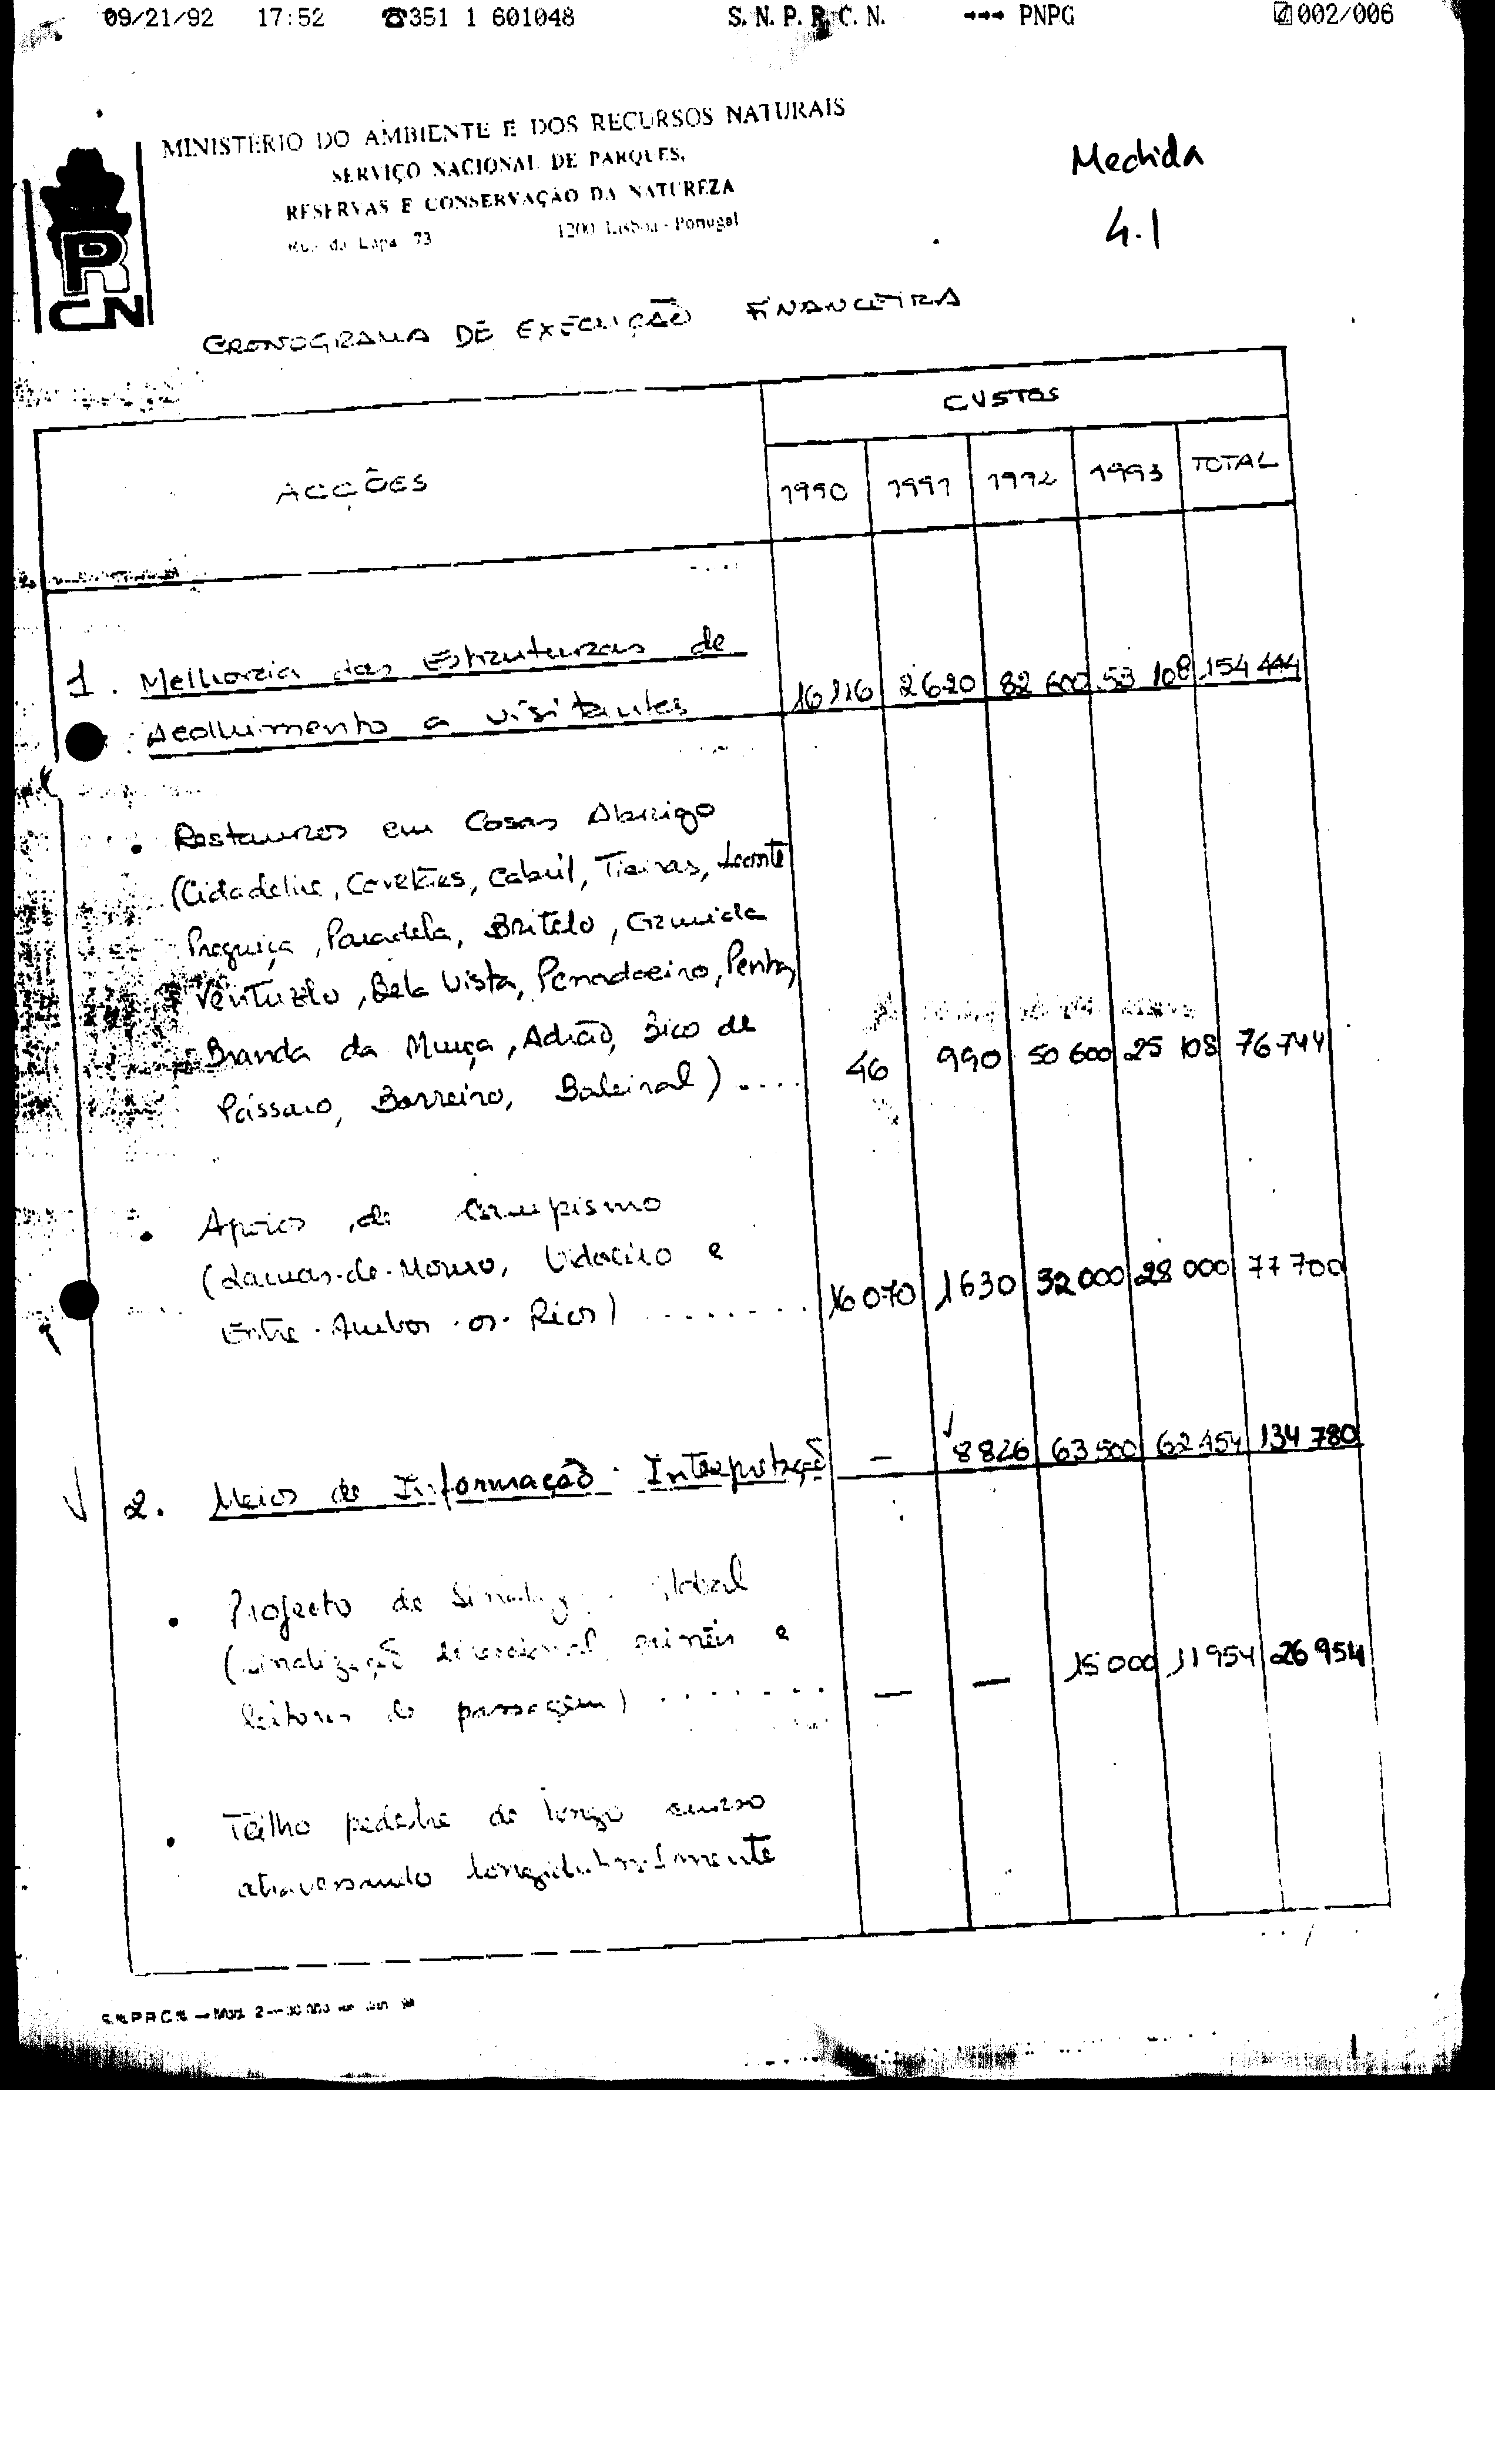 09/21/92 17:52 ☎351 1 601048 S. N. P. R. C. N. →→→ PNPG 002/006
MINISTÉRIO DO AMBIENTE E DOS RECURSOS NATURAIS
SERVIÇO NACIONAL DE PARQUES,
RESERVAS E CONSERVAÇÃO DA NATUREZA
Rua da Lapa 73 1200 Lisboa - Portugal
Medida
4.1
PR
CN
CRONOGRAMA DE EXECUÇÃO FINANCEIRA
CUSTOS
ACÇÕES 1990 1991 1992 1993 TOTAL
1. Melhoria das Estruturas de
Acolhimento a visitantes 16 116 2 620 82 600 53 108 154 444
• Restauros em Casas Abrigo
(Cidadelhe, Covelães, Cabril, Tieiras,
Preguiça, Paradela, Britelo, Gramida
Ventuzelo, Bela Vista, Penadoeiro,
Branda da Murça, Adrão, Bico de
Pássaro, Barreiro, Baleiral) .... 46 990 50 600 25 108 76 744
• Apoios de Campismo
(Lamas-de-Mouro, Vidoeiro e
Entre-Ambos-os-Rios) ........ 16 070 1 630 32 000 28 000 77 700
2. Meios de Informação - Interpretação — 8 826 63 500 62 454 134 780
• Projecto de Global
(sinalização direccional, painéis e
leitores de passagem) ....... — — 15 000 11 954 26 954
• Trilho pedestre de longo curso
atravessando longitudinalmente
../.
S.N.P.R.C.N. — Mod. 2